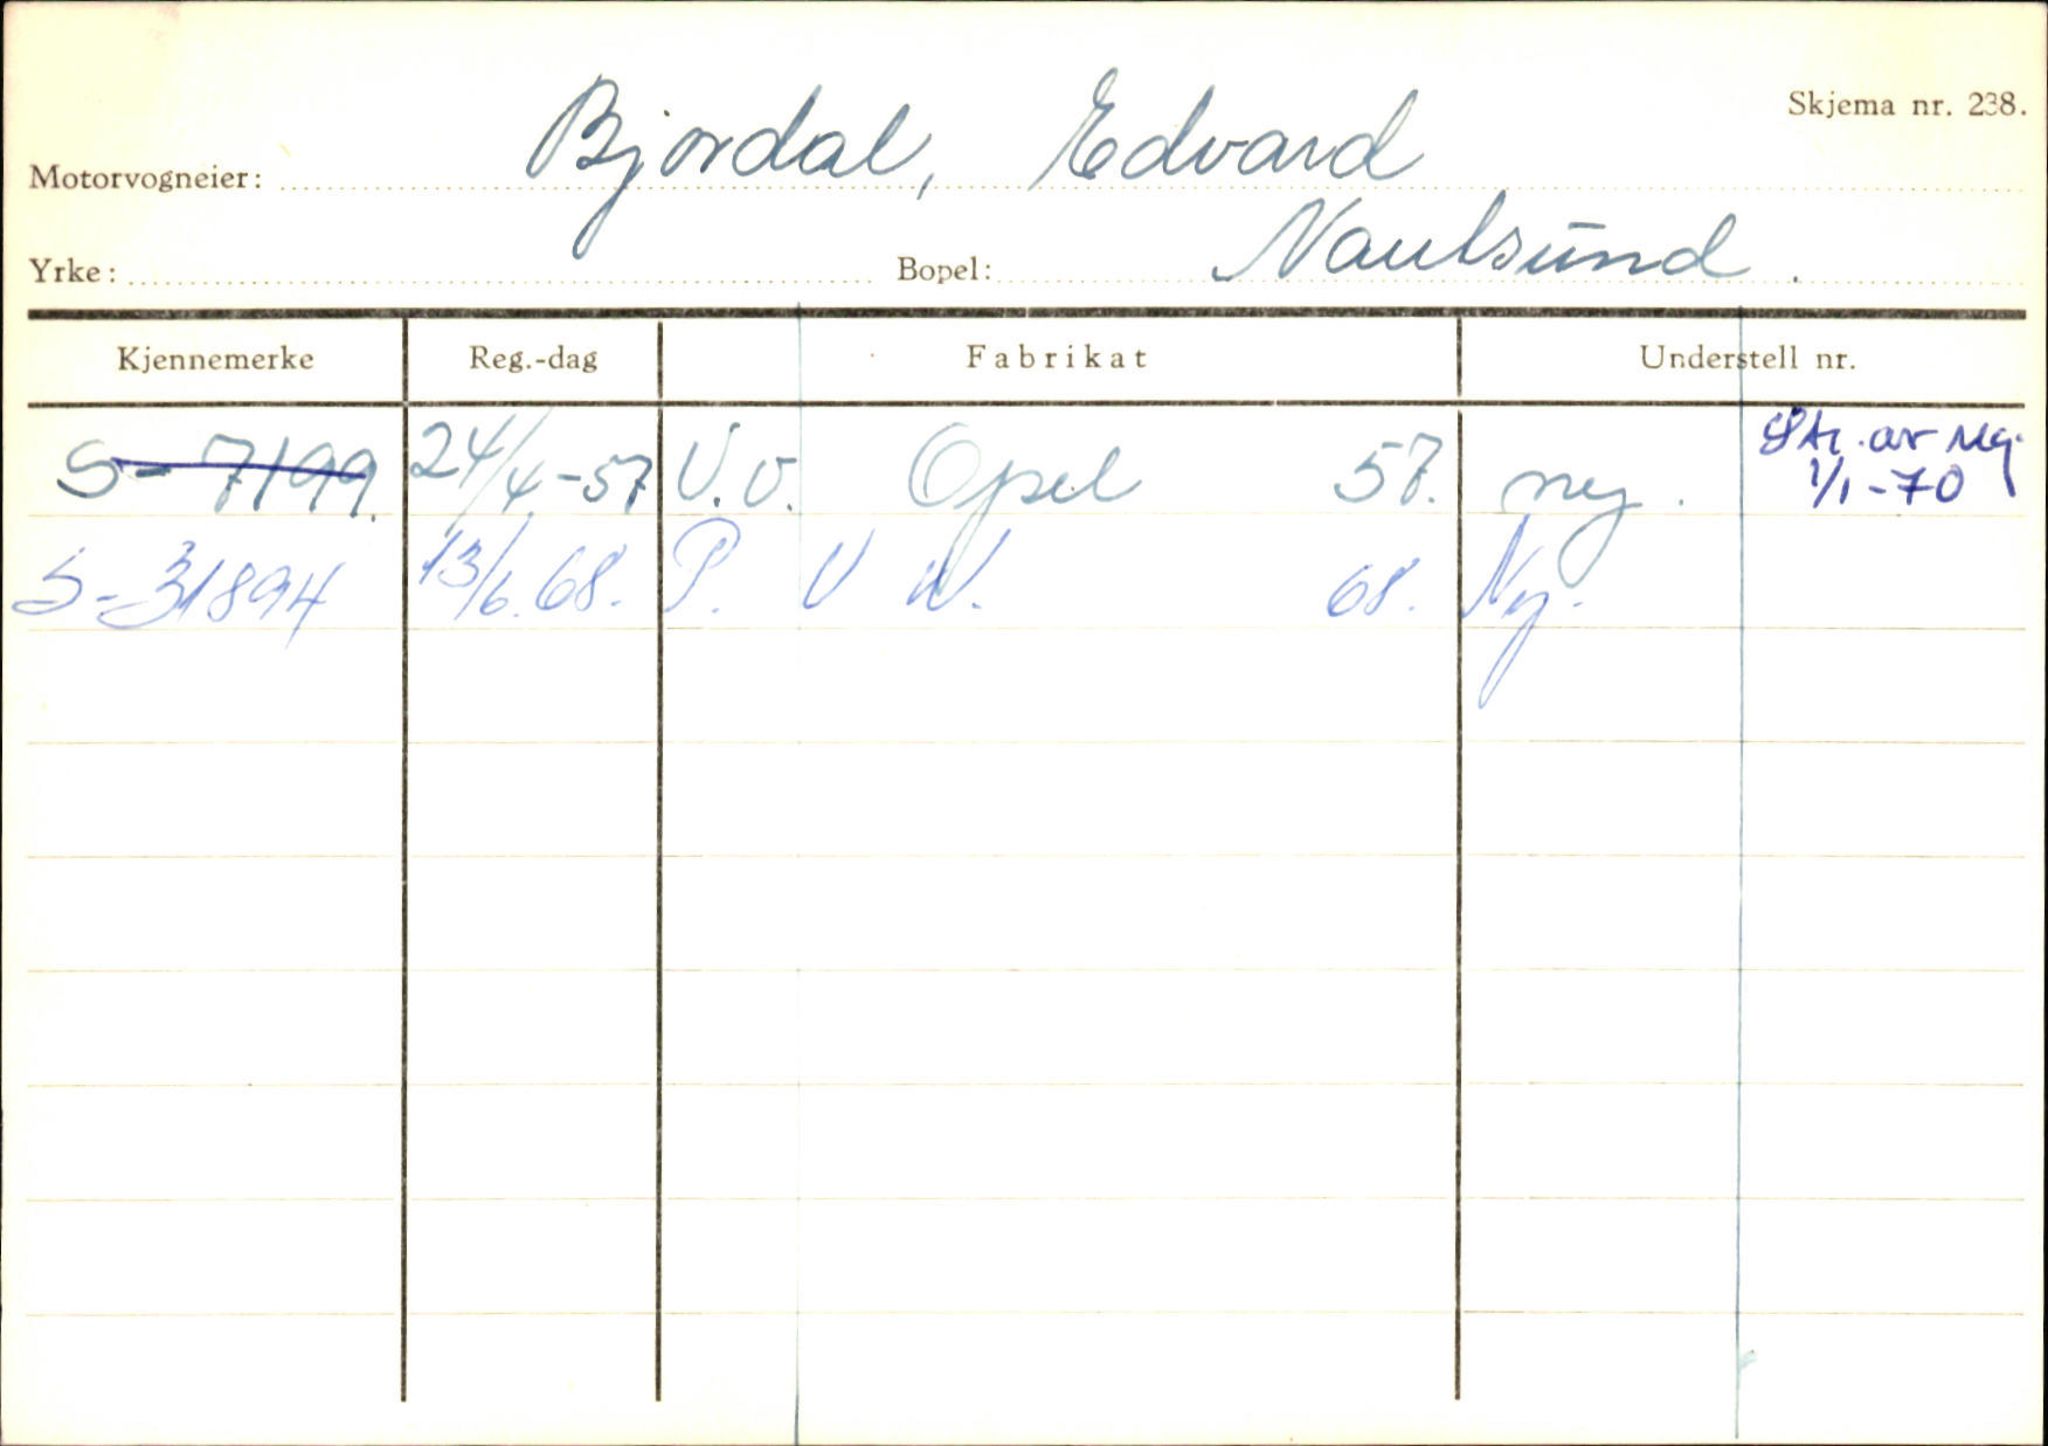 Skjema nr. 238.
Motorvogneier: Bjordal, Edvard
Yrke: Bopel: Naulsund.
Kjennemerke Reg.-dag Fabrikat Understell nr.
S-7199. 24/4-57 V.v. Opel 57. ny. Str. av reg. 1/1-70
S-31894 13/6.68. P. V W. 68. Ny.